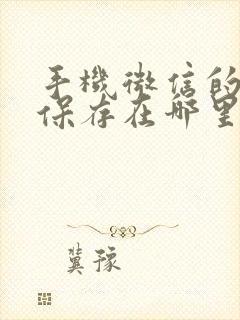 手機微信的
保存在哪里
冀豫